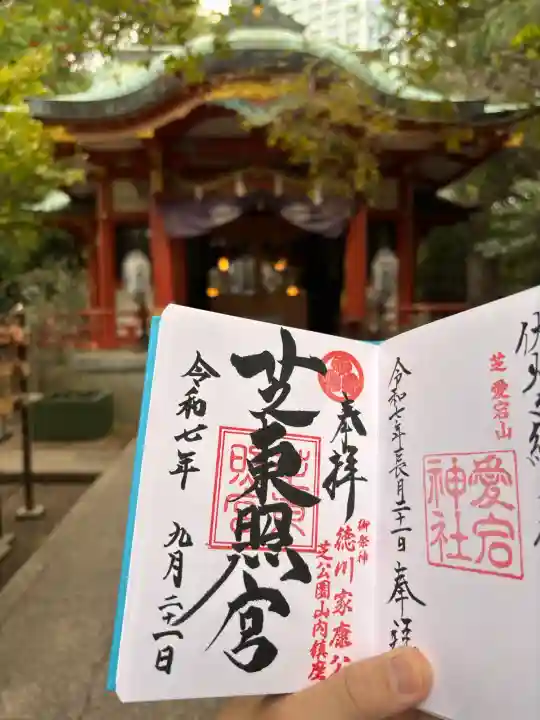 奉拝
御祭神
徳川家康公
芝公園山内鎮座
芝東照宮
令和七年
九月二十一日
芝愛宕山
愛宕
神社
令和七年長月二十一日奉拝